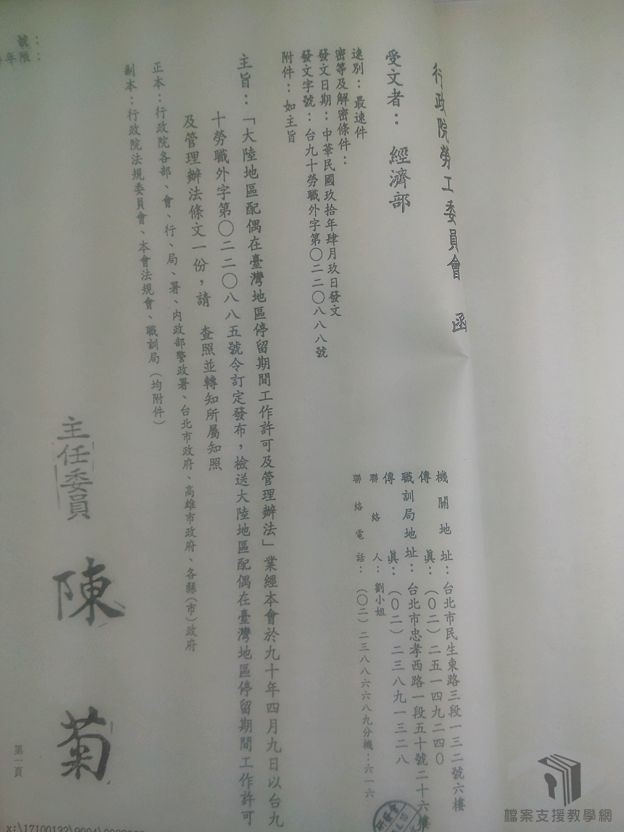 號：
年限：
行政院勞工委員會　函
機關地址：台北市民生東路三段一三二號六樓
傳　真：（０二）二五一四九二四０
職訓局地址：台北市忠孝西路一段五十號二十六樓
傳　真：（０二）二三八九一三二八
聯絡人：劉小姐
聯絡電話：（０二）二三八八六六八九分機：六一六
受文者：經濟部
速別：最速件
密等及解密條件：
發文日期：中華民國玖拾年肆月玖日發文
發文字號：台九十勞職外字第０二二０八八八號
附件：如主旨
主旨：「大陸地區配偶在臺灣地區停留期間工作許可及管理辦法」業經本會於九十年四月九日以台九
十勞職外字第０二二０八八五號令訂定發布，檢送大陸地區配偶在臺灣地區停留期間工作許可
及管理辦法條文一份，請　查照並轉知所屬知照
正本：行政院各部、會、行、局、署、內政部警政署、台北市政府、高雄市政府、各縣（市）政府
副本：行政院法規委員會、本會法規會、職訓局（均附件）
主任委員　陳　菊
第一頁
檔案支援教學網